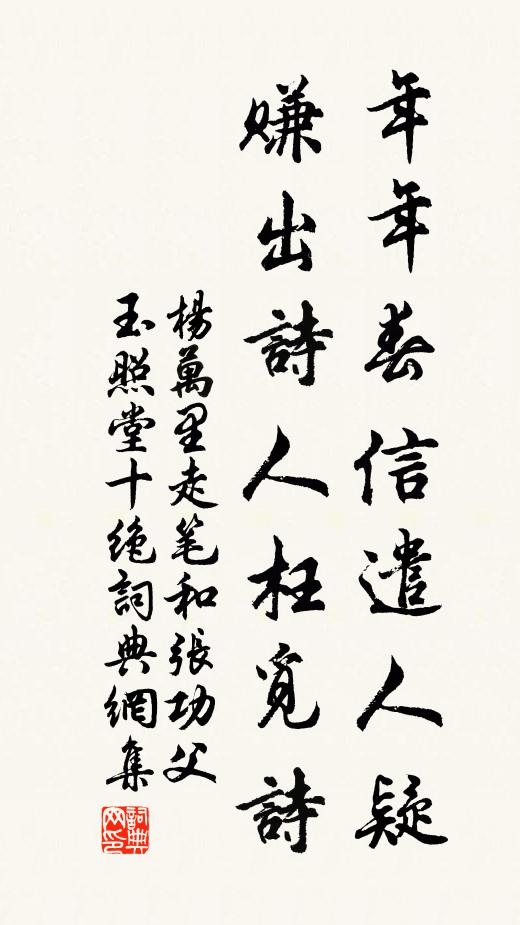 年年春信遣人疑
賺出詩人枉覓詩
楊萬里走笔和張功父
玉照堂十绝詞典網集
詞典网印